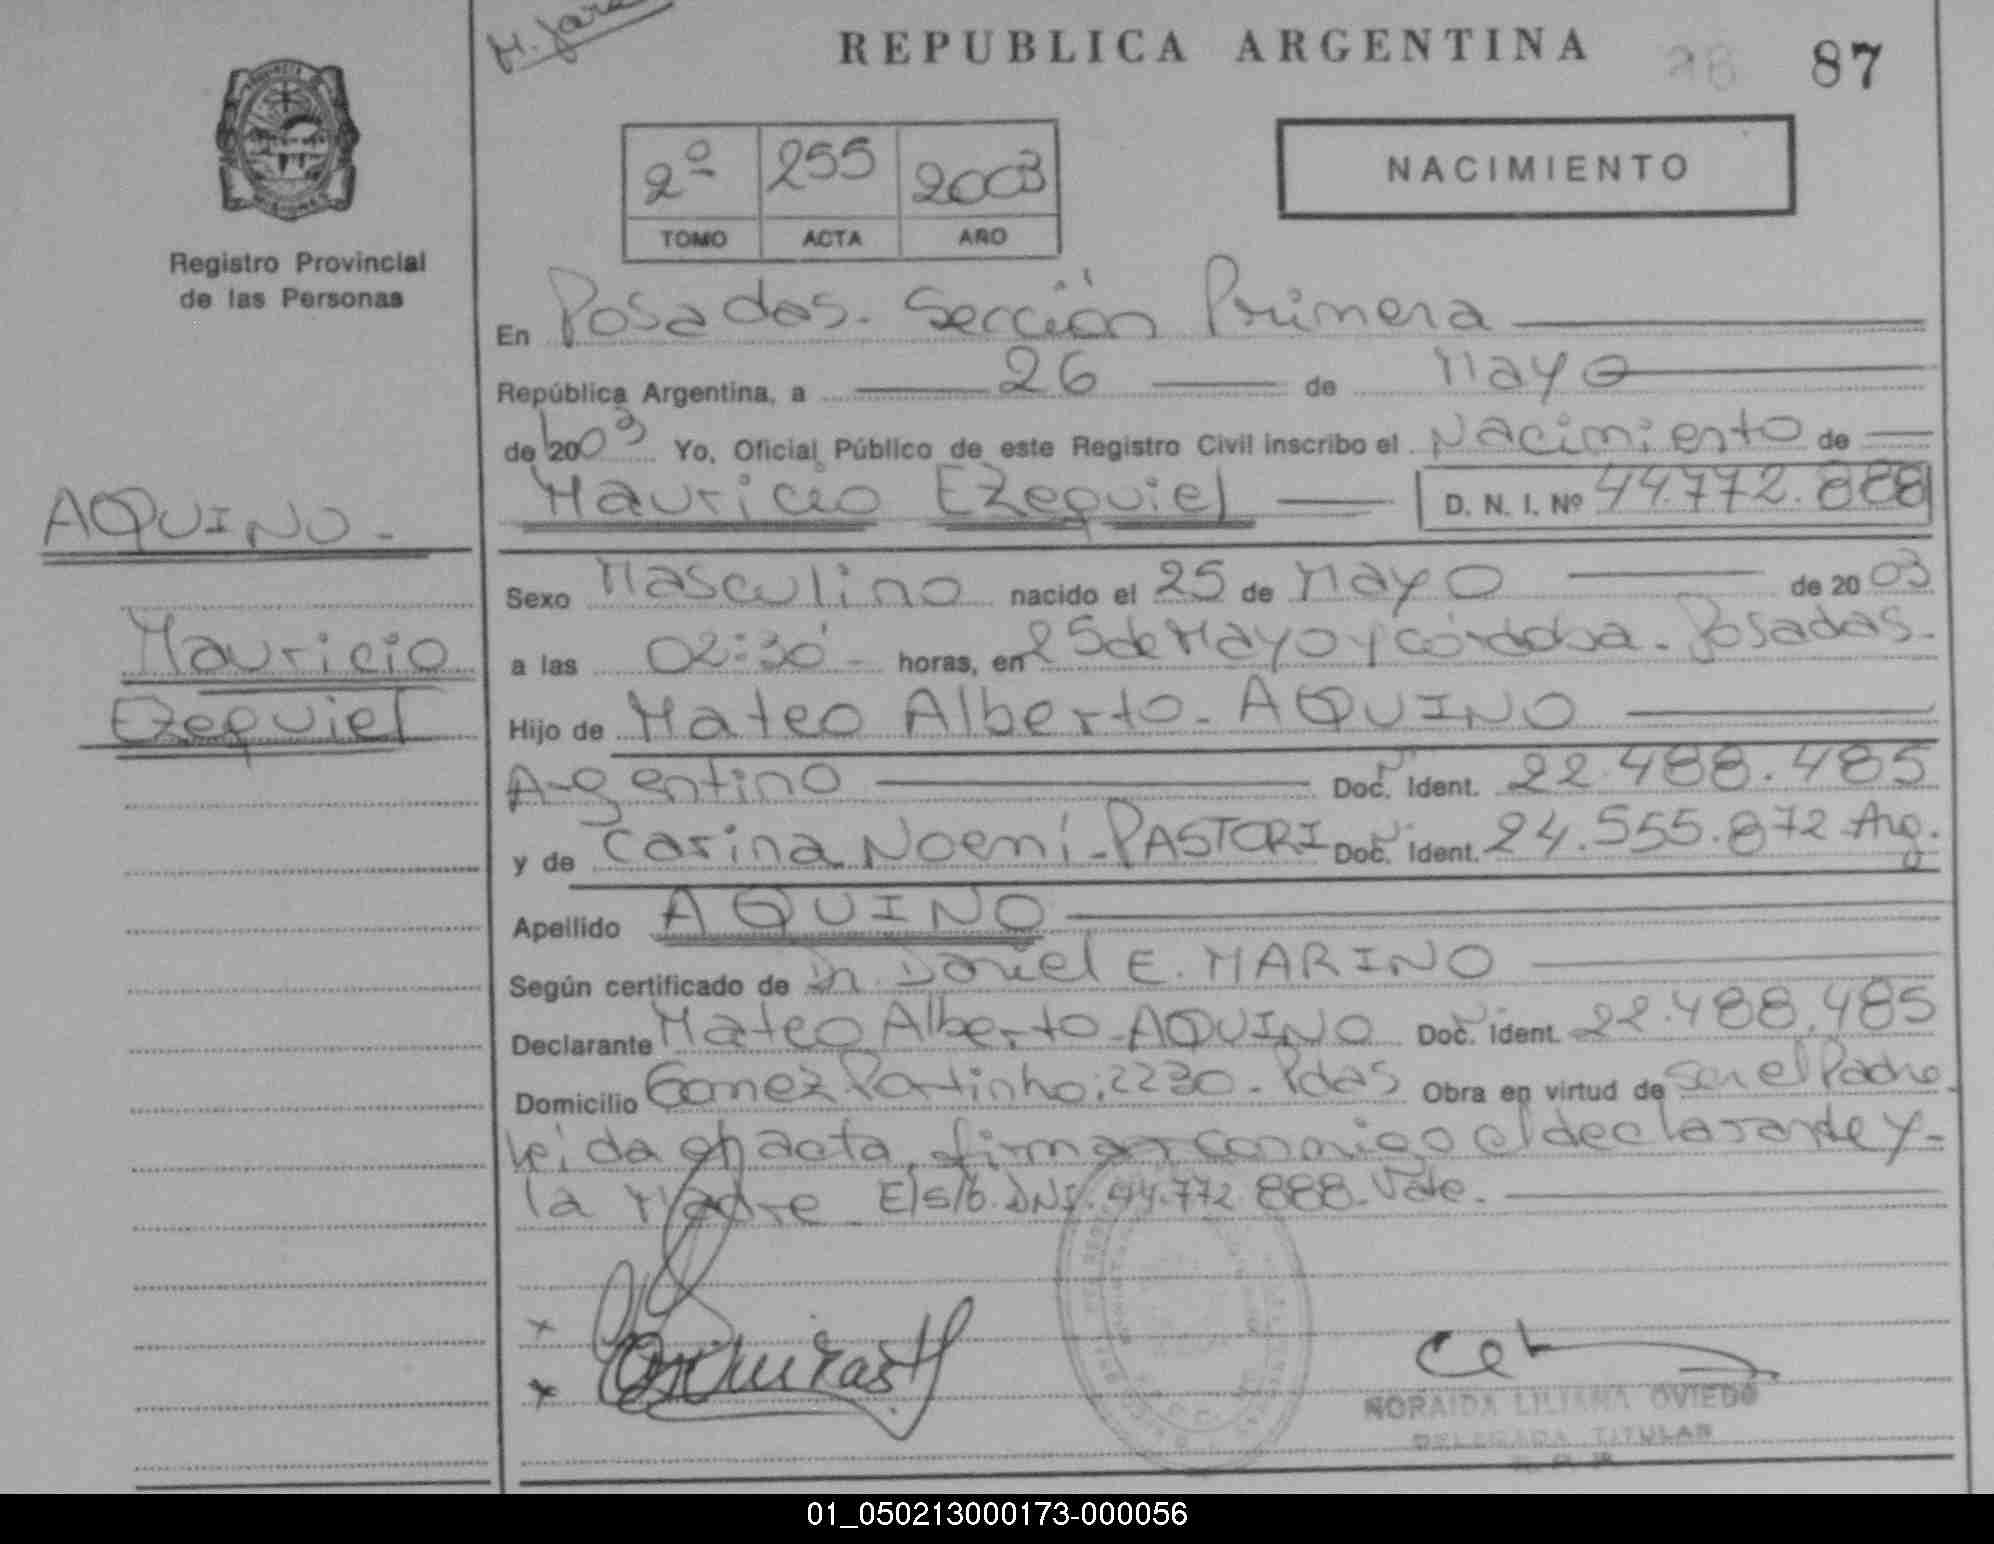 REPUBLICA ARGENTINA
87
2º 255 2003
TOMO ACTA AÑO
NACIMIENTO
Registro Provincial
de las Personas
En Posadas. Sección Primera
República Argentina, a 26 de Mayo
de 2003 Yo, Oficial Público de este Registro Civil inscribo el Nacimiento de
Mauricio Ezequiel D. N. I. Nº 44.772.888
AQUINO.
Mauricio
Ezequiel
Sexo Masculino nacido el 25 de Mayo de 2003
a las 02:30 horas, en 25 de Mayo y Córdoba. Posadas.
Hijo de Mateo Alberto. AQUINO
Argentino Doc. Ident. 22.488.485
y de Carina Noemi. PASTORI Doc. Ident. 24.555.872 Arg.
Apellido AQUINO
Según certificado de Dr. Daniel E. MARINO
Declarante Mateo Alberto. AQUINO Doc. Ident. 22.488.485
Domicilio Gomez Portinho: 2230. Pdas Obra en virtud de ser el Padre.
Leída el acta, firman conmigo el declarante y
la Madre. E/s/b. DNI. 44.772.888. Vale.
NORAIDA LILIANA OVIEDO
DELEGADA TITULAR
01_050213000173-000056